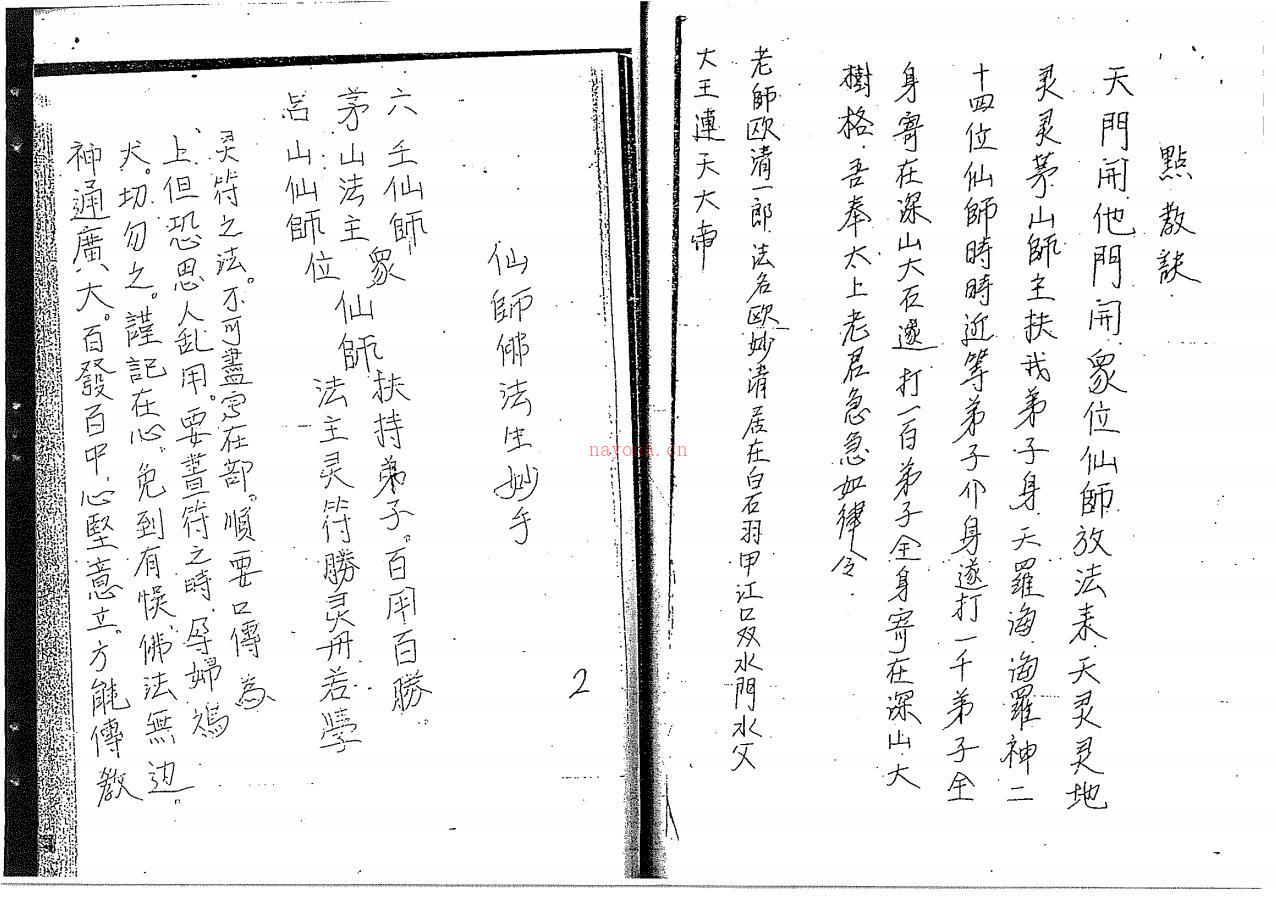 點教訣
天門開.他門開.眾位仙師放法来.天灵灵地
灵灵茅山師主扶我弟子身.天羅海.海羅神二
十四位仙師時時近等弟子个身遂打一千弟子全
身寄在深山大石遂打一百弟子全身寄在深山大
樹格.吾奉太上老君急急如律令.
老師欧清一郎法名欧妙清居在白石羽甲江口双水門水父
大王連天大帝
仙師佛法生妙手
六壬仙師
茅山法主
吕山仙師
眾仙師
位
扶持弟子。百用百勝。
法主灵符勝灵丹若學
灵符之法。不可盡寫在部。順要口傳為
上但恐思人乱用。要畫符之時.辱婦鴆
犬。切勿之。謹記在心.免到有悞.佛法無边。
神通廣大。百發百中.心堅意立。方能傳教
2
nayona.cn